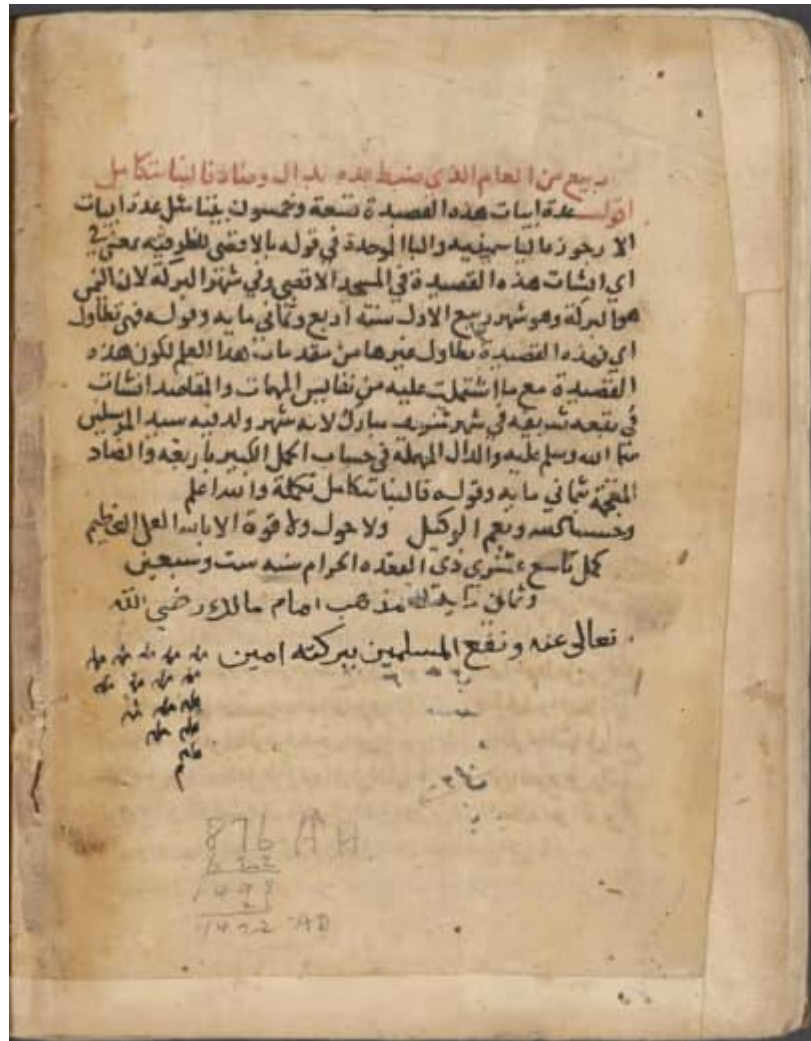 ربيع من العام الذي ضبط عده بدال وضاد فالبنا متكامل
اقول عدة ابيات هذه القصيدة تسعة وخمسون بيتا مثل عدة ابيات
الارجوزة والبا الموحدة في قوله بالاقصى للظرفية بمعنى في
اي انشات هذه القصيدة في المسجد الاقصى وفي شهر البركة لان
هو البركة وهو شهر ربيع الاول سنة اربع وثماني مايه وقوله فهي تطاول
اي فهذه القصيدة تطاول غيرها من مقدمات هذا العلم لكون هذه
القصيدة مع ما اشتملت عليه من نفايس المهمات والمقاصد انشات
في بقعه شريفه في شهر شريف مبارك لانه شهر ولد فيه سيد المرسلين
صلى الله وسلم عليه والدال المهملة في حساب الجمل الكبير باربعه والضاد
المعجمة بثماني مايه وقوله فالبنا متكامل تكملة والله اعلم
وحسبنا الله ونعم الوكيل ولا حول ولا قوة الا بالله العلي العظيم
كمل تاسع عشرى ذي القعده الحرام سنه ست وسبعين
وثمان مايه مذهب امام مالك رضي الله
تعالى عنه ونفع المسلمين ببركته امين
876 AH
622
1498
1472 AD